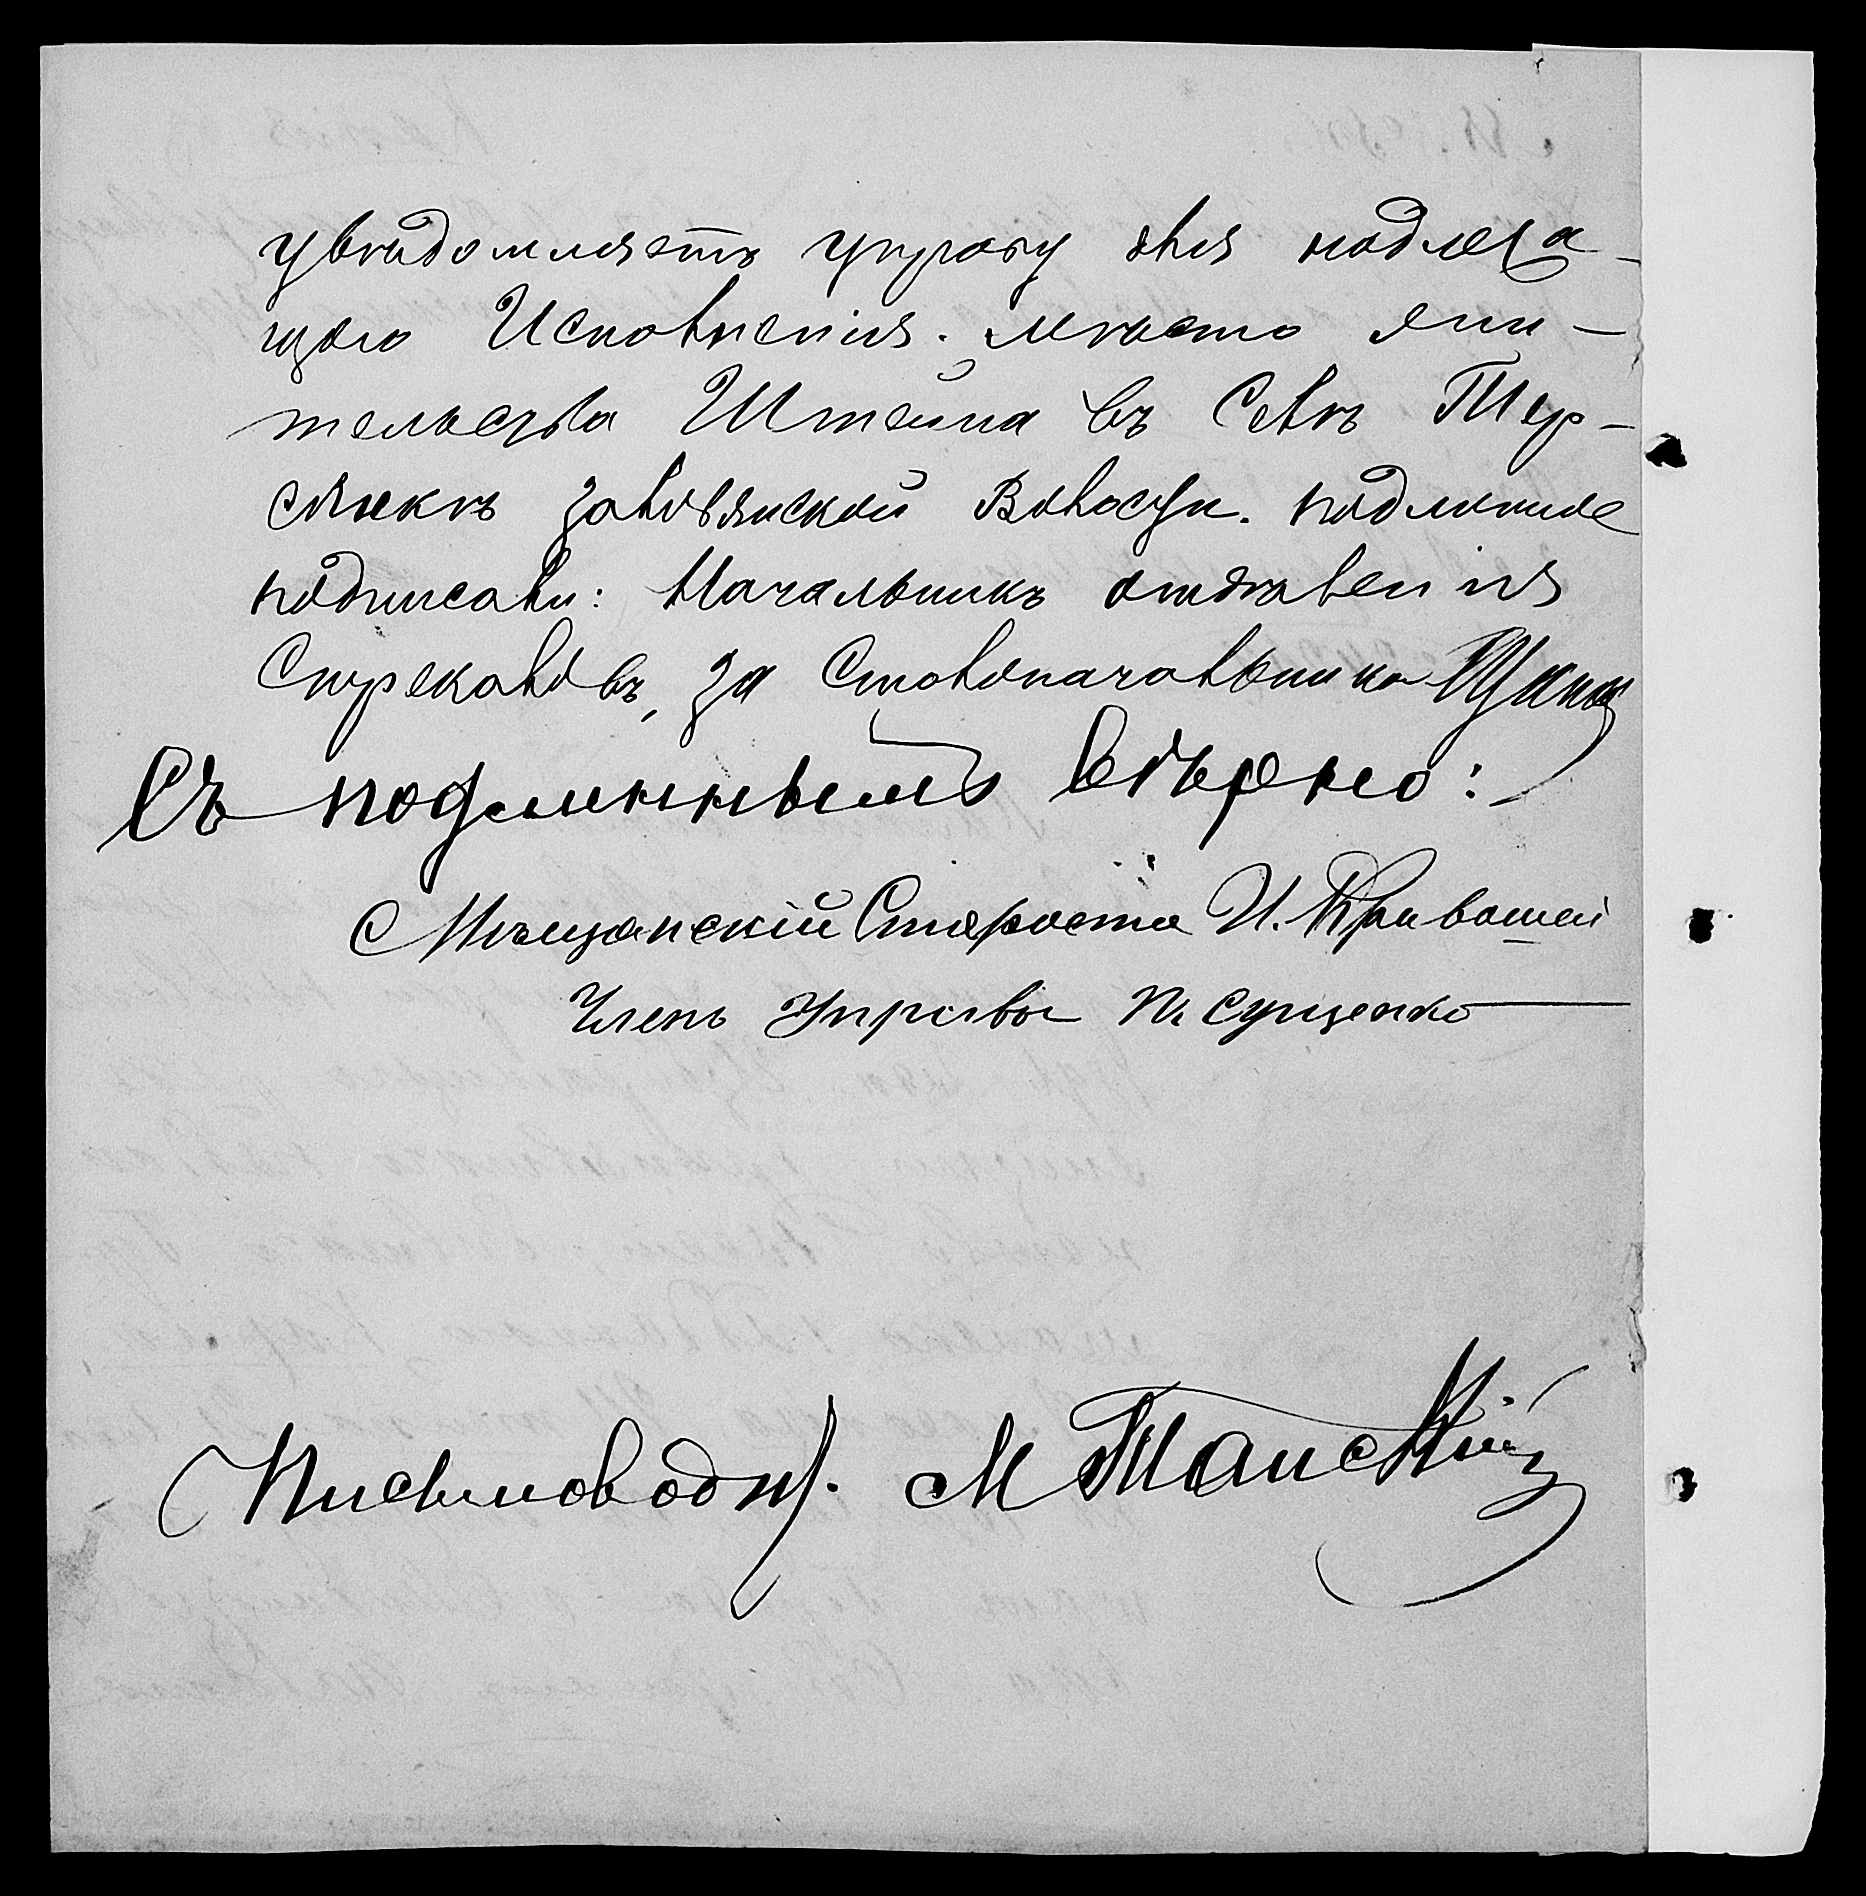 увѣдомляетъ управу для надлежа-
щаго Исполненія. мѣсто жи-
тельства Штейна въ Селѣ Тер-
сянкѣ Волости. подлинное
подписали: Начальникъ отдѣленія
Стрекаловъ, за Столоначальника
Съ подлиннымъ вѣрно:
Мѣщанскій Староста И. Кривошеи
Членъ Управы П. Сущенко
Письмоводит. М